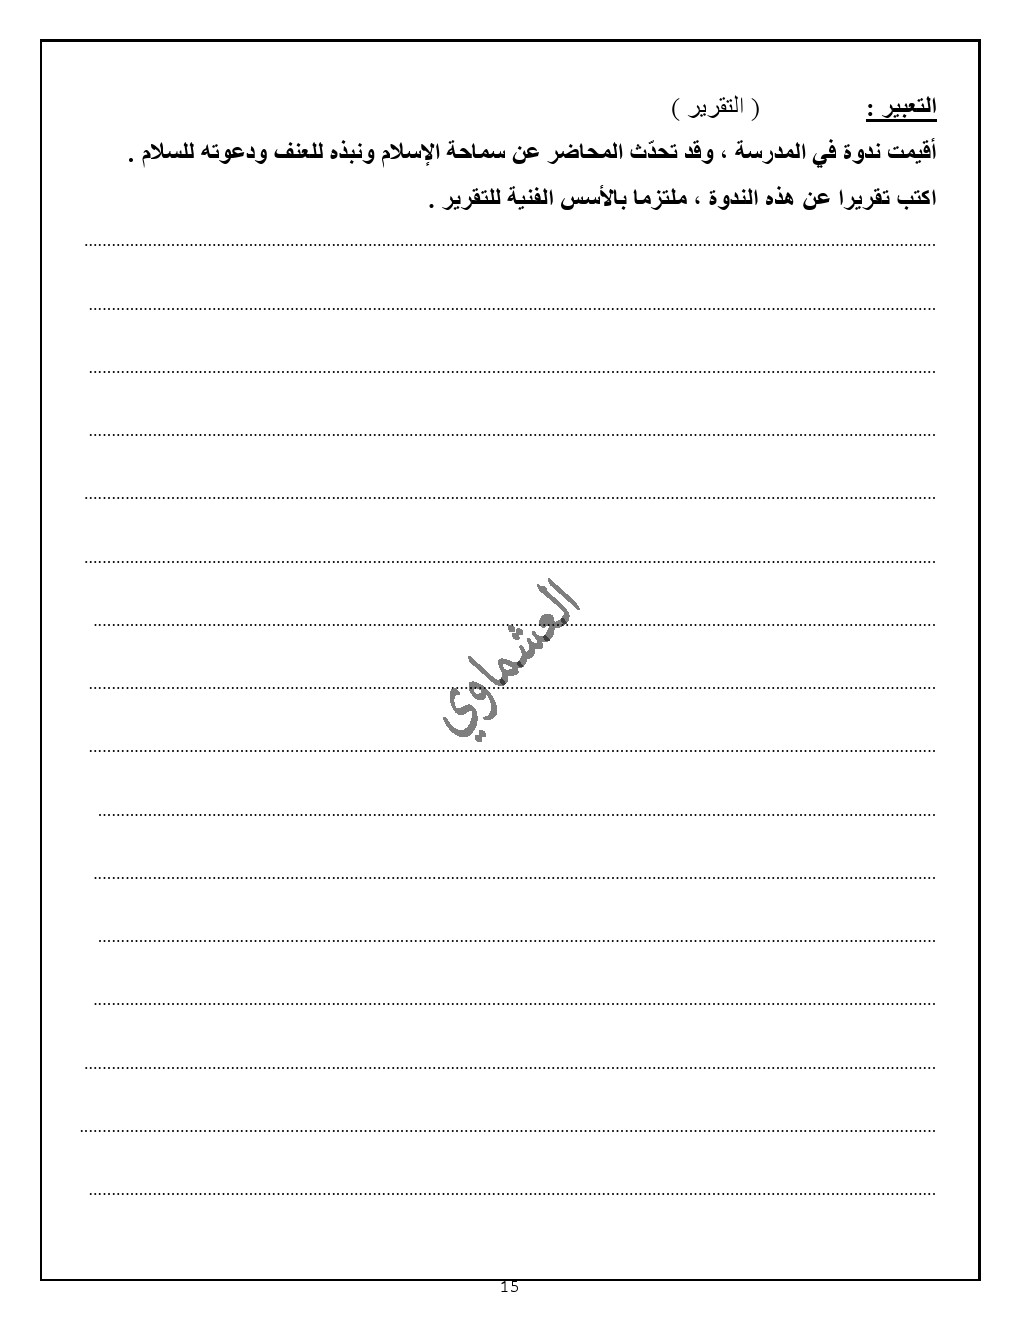 التعبير : ( التقرير )
أقيمت ندوة في المدرسة ، وقد تحدّث المحاضر عن سماحة الإسلام ونبذه للعنف ودعوته للسلام .
اكتب تقريرا عن هذه الندوة ، ملتزما بالأسس الفنية للتقرير .
العشماوي
15